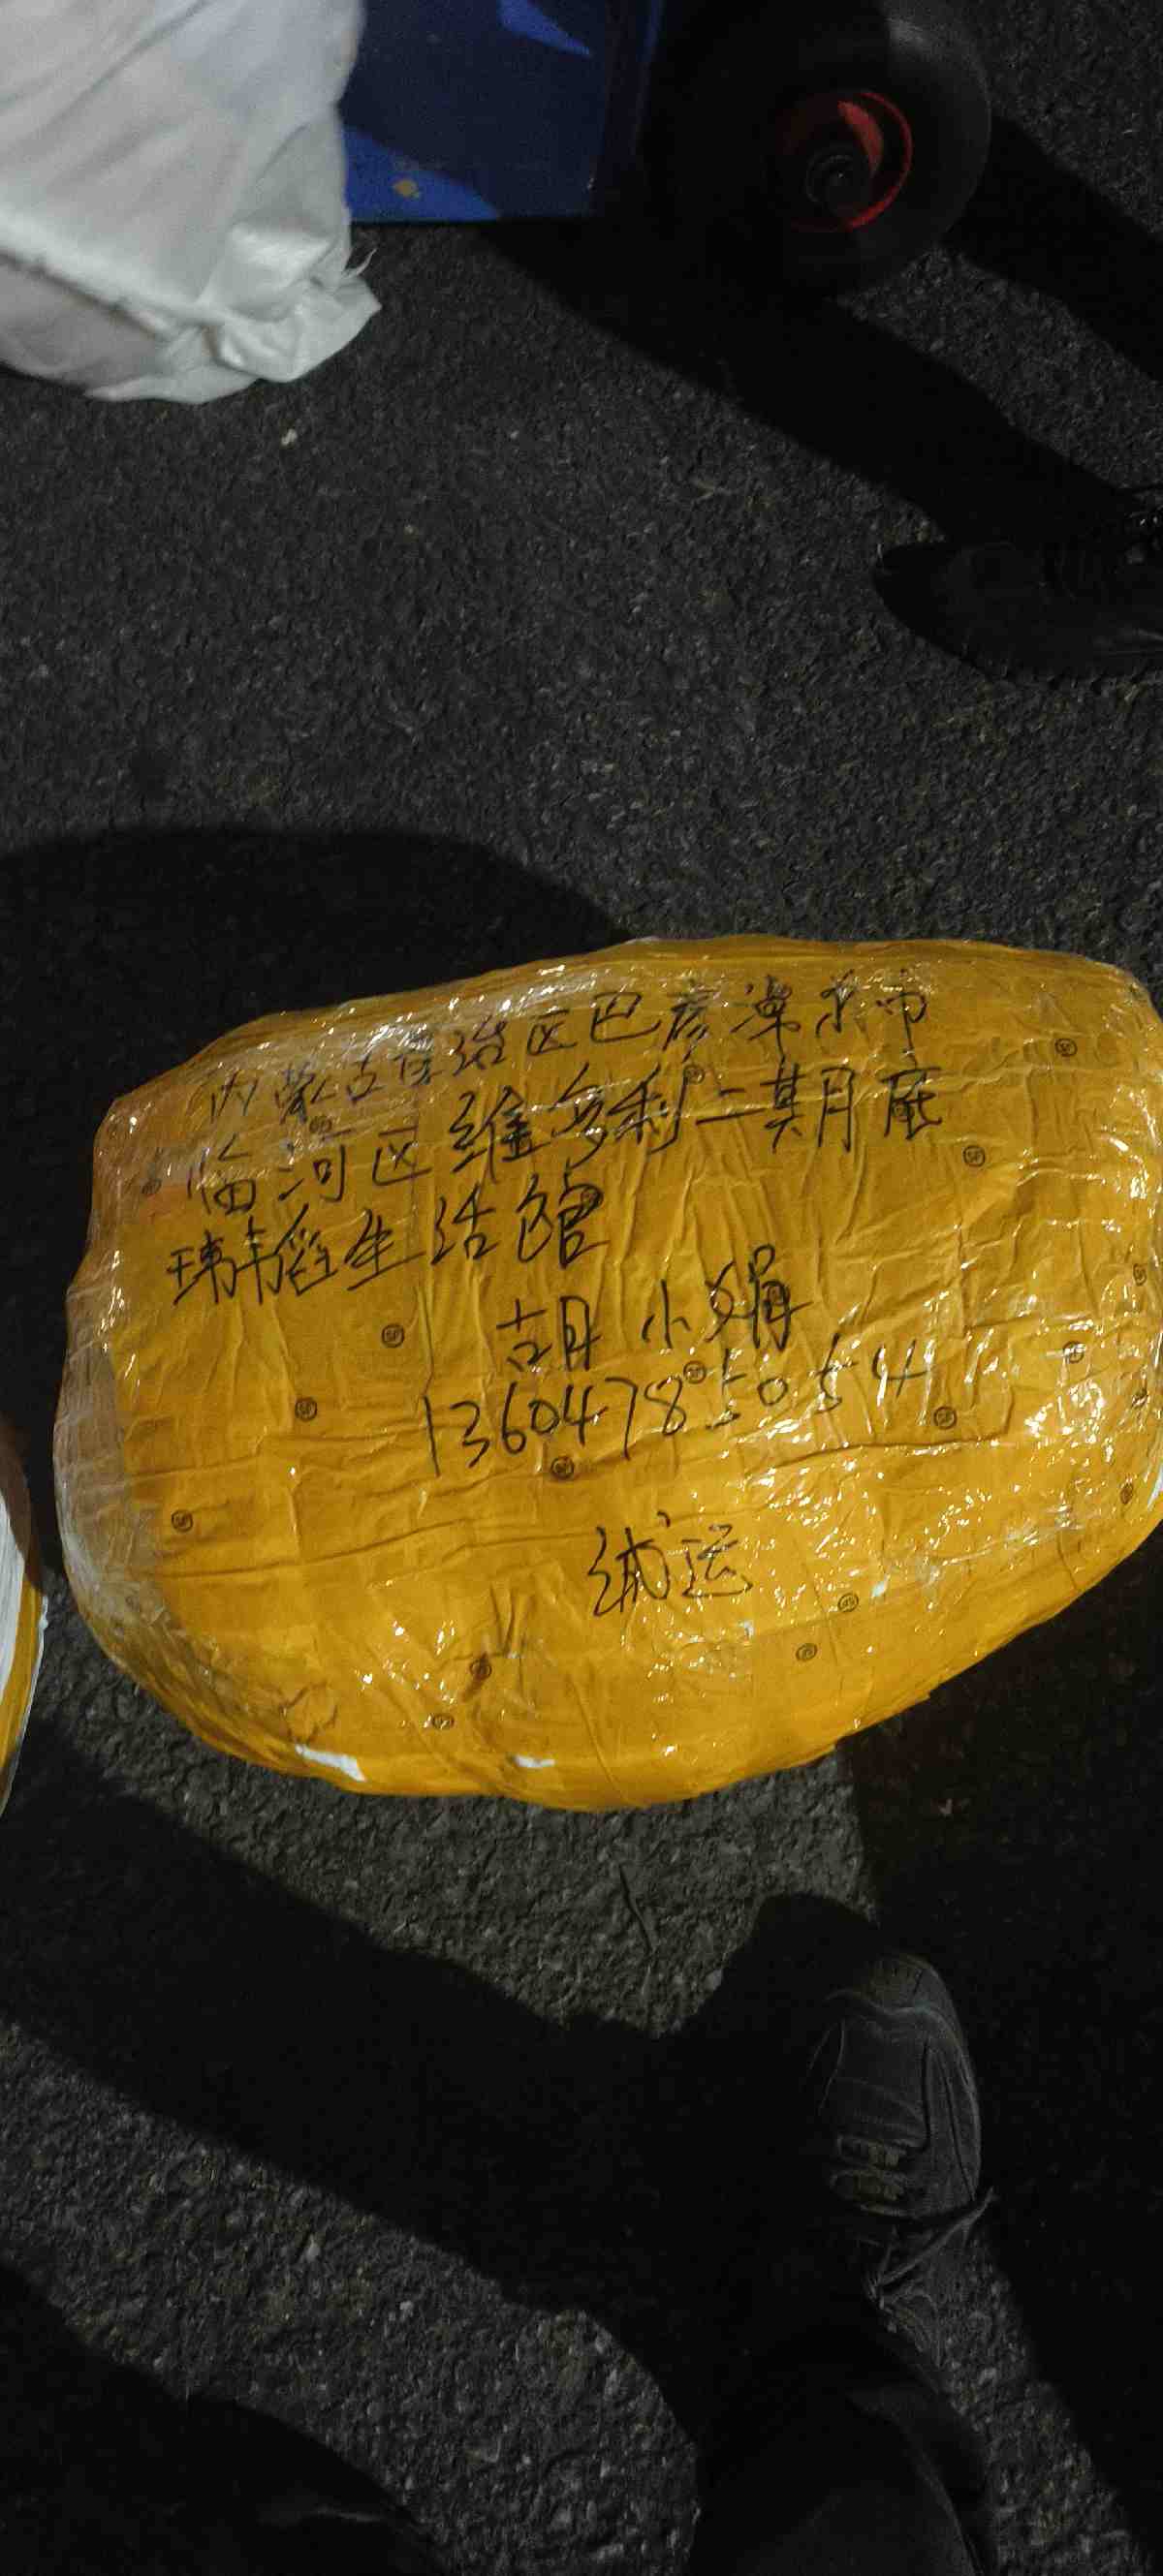 内蒙古自治区巴彦淖尔市
临河区维多利二期底
玮韬生活馆
胡小娟
13604785054
绒运